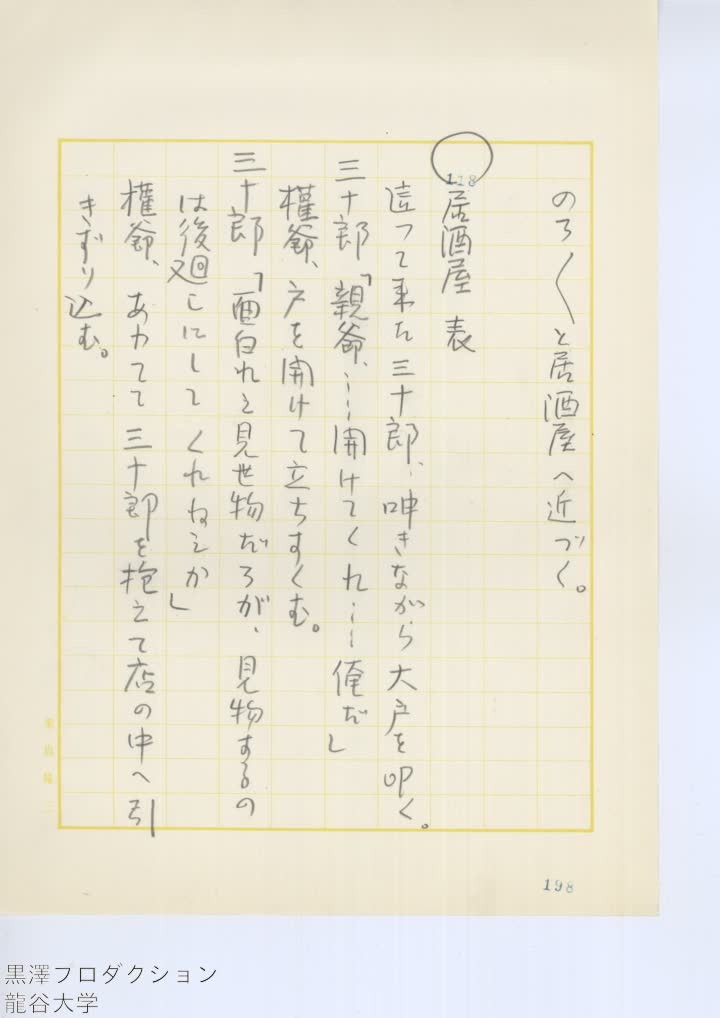 のろ〱と居酒屋へ近づく。
118
居酒屋 表
這つて来た三十郎、呻きながら大戸を叩く。
三十郎「親爺、……開けてくれ……俺だ」
権爺、戸を開けて立ちすくむ。
三十郎「面白れえ見世物だろが、見物するの
は後廻しにしてくれねえか」
権爺、あわてて三十郎を抱えて店の中へ引
きずり込む。
198
黒澤プロダクション
龍谷大学